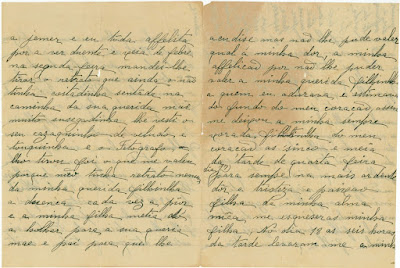 a gemer e eu toda afflicta
por a ver duente e xeia de febre
na segunda feira mandei-lhe
tirar o retrato que ainda o não
tinha coitadinha sentada na
caminha da sua querida mãe
muito socegadinha lhe vesti o
seu cazaquinho de veludo, e
touquinha e o Fotografo
lho tirou foi o que me valeu
porque não tinha retrato nenhum
da minha querida filhinha
a duença cada vez a pior
e a minha filha metia dó
a holhar para a sua querida
mãe e pai para que lhe
acudise mas não lhe pude valer
qual a minha dor a minha
afflicção por não lhe puder
valer a minha querida filhinha
a quem eu adorava e estimava
do fundo do meu coração, assim
me deixou a minha sempre
chorada, filhinha do meu
coração as sinco e meia
da tarde de quarta feira
para sempre na mais ardente
dor e tristeza e paixão
filha da minha alma
minha filha
filha, No dia 18 as seis horas
da tarde levaram-me a minha